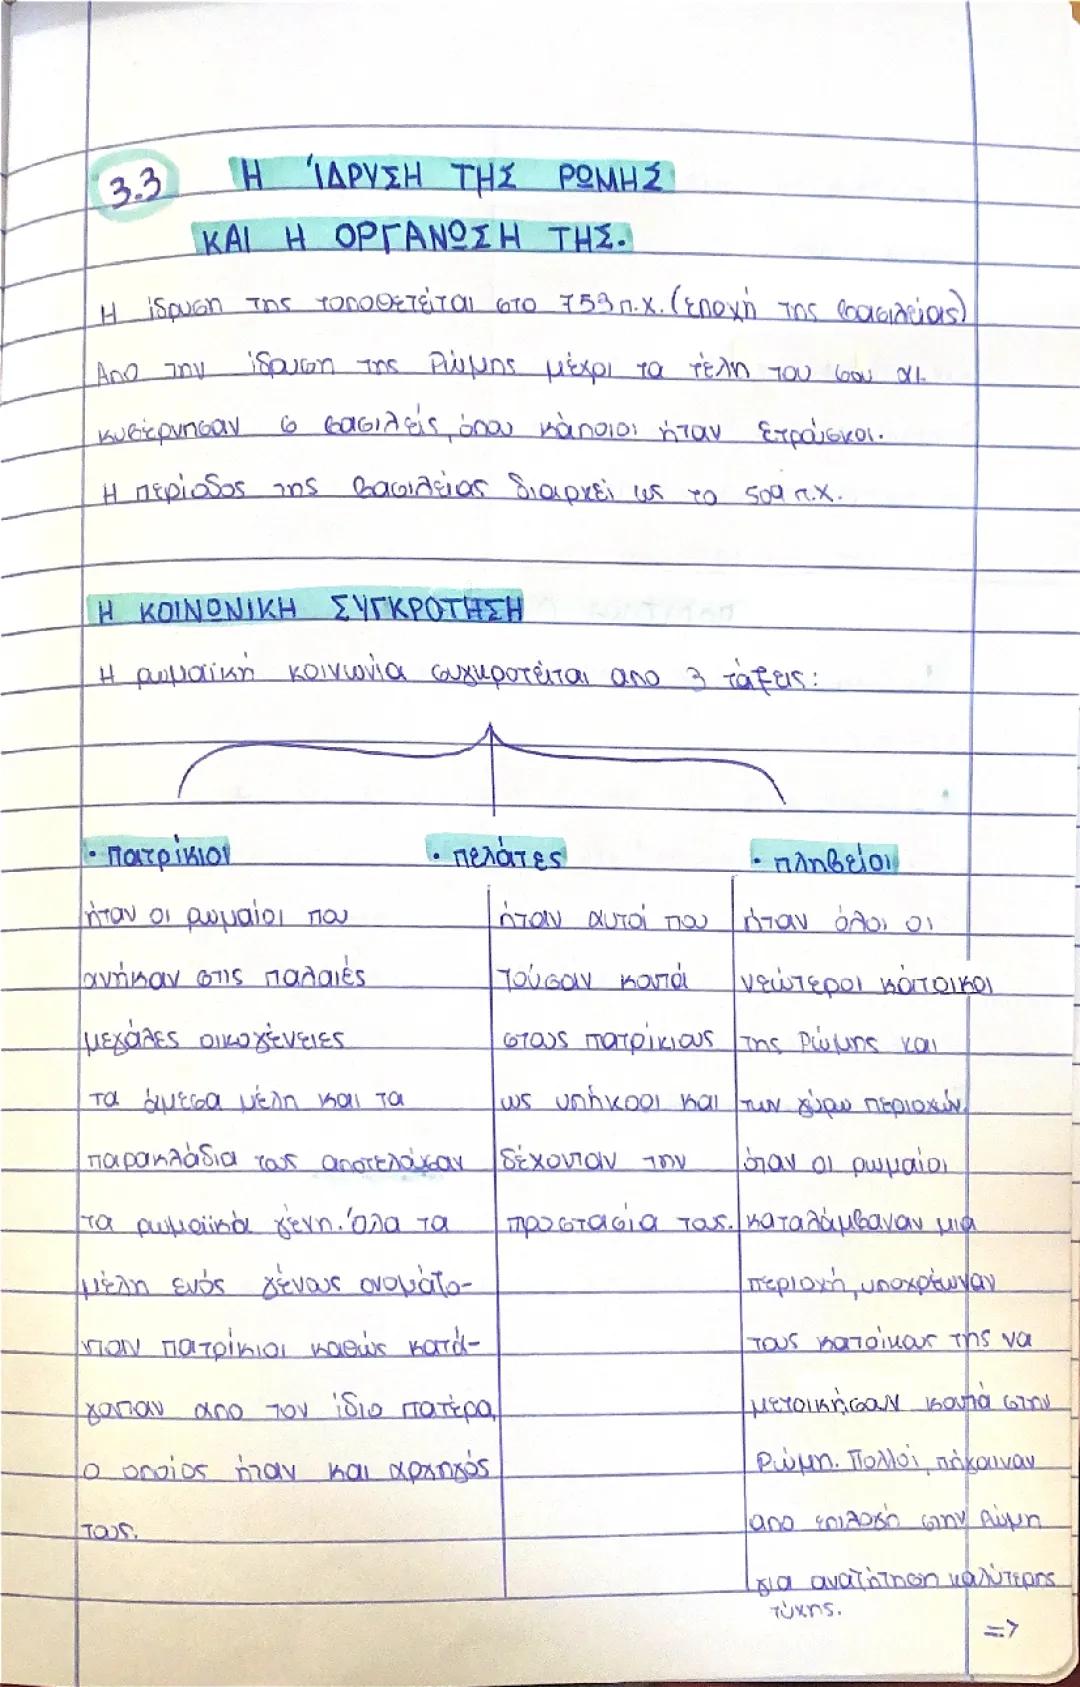 3.3 Η ΊΔΡΥΣΗ ΤΗΣ ΡΩΜΗΣ
ΚΑΙ Η ΟΡΓΑΝΩΣΗ ΤΗΣ.
Η ίδρυση της τοποθετείται στο 753 π.Χ. (εποχή της βασιλείας)
Από την ίδρυση της Ρώμης μέχρι τα τέλη του 6ου αι.
κυβέρνησαν 6 βασιλείς, όπου κάποιοι ήταν Ετρούσκοι.
Η περίοδος της βασιλείας διαρκεί ως το 509 π.Χ.
Η ΚΟΙΝΩΝΙΚΗ ΣΥΓΚΡΟΤΗΣΗ
Η ρωμαϊκή κοινωνία συγκροτείται από 3 τάξεις:
• πατρίκιοι
ήταν οι ρωμαίοι που
ανήκαν στις παλαιές
μεγάλες οικογένειες
τα άμεσα μέλη και τα
παρακλάδια τους αποτελούσαν
τα ρωμαϊκά γένη. Όλα τα
μέλη ενός γένους ονομάζο-
νταν πατρίκιοι καθώς κατά-
γονταν από τον ίδιο πατέρα,
ο οποίος ήταν και αρχηγός
τους.
• πελάτες
ήταν αυτοί που
ζούσαν κοντά
στους πατρίκιους
ως υπήκοοι και
δέχονταν την
προστασία τους.
• πληβείοι
ήταν όλοι οι
νεώτεροι κάτοικοι
της Ρώμης και
των γύρω περιοχών.
όταν οι ρωμαίοι
καταλάμβαναν μια
περιοχή, υποχρέωναν
τους κατοίκους της να
μετοικήσουν κοντά στην
Ρώμη. Πολλοί, πήγαιναν
από επιλογή στην Ρώμη
για αναζήτηση καλύτερης
τύχης.
=>